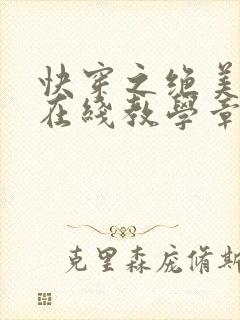 快穿之绝美
在线教学章
克里森庞脩斯